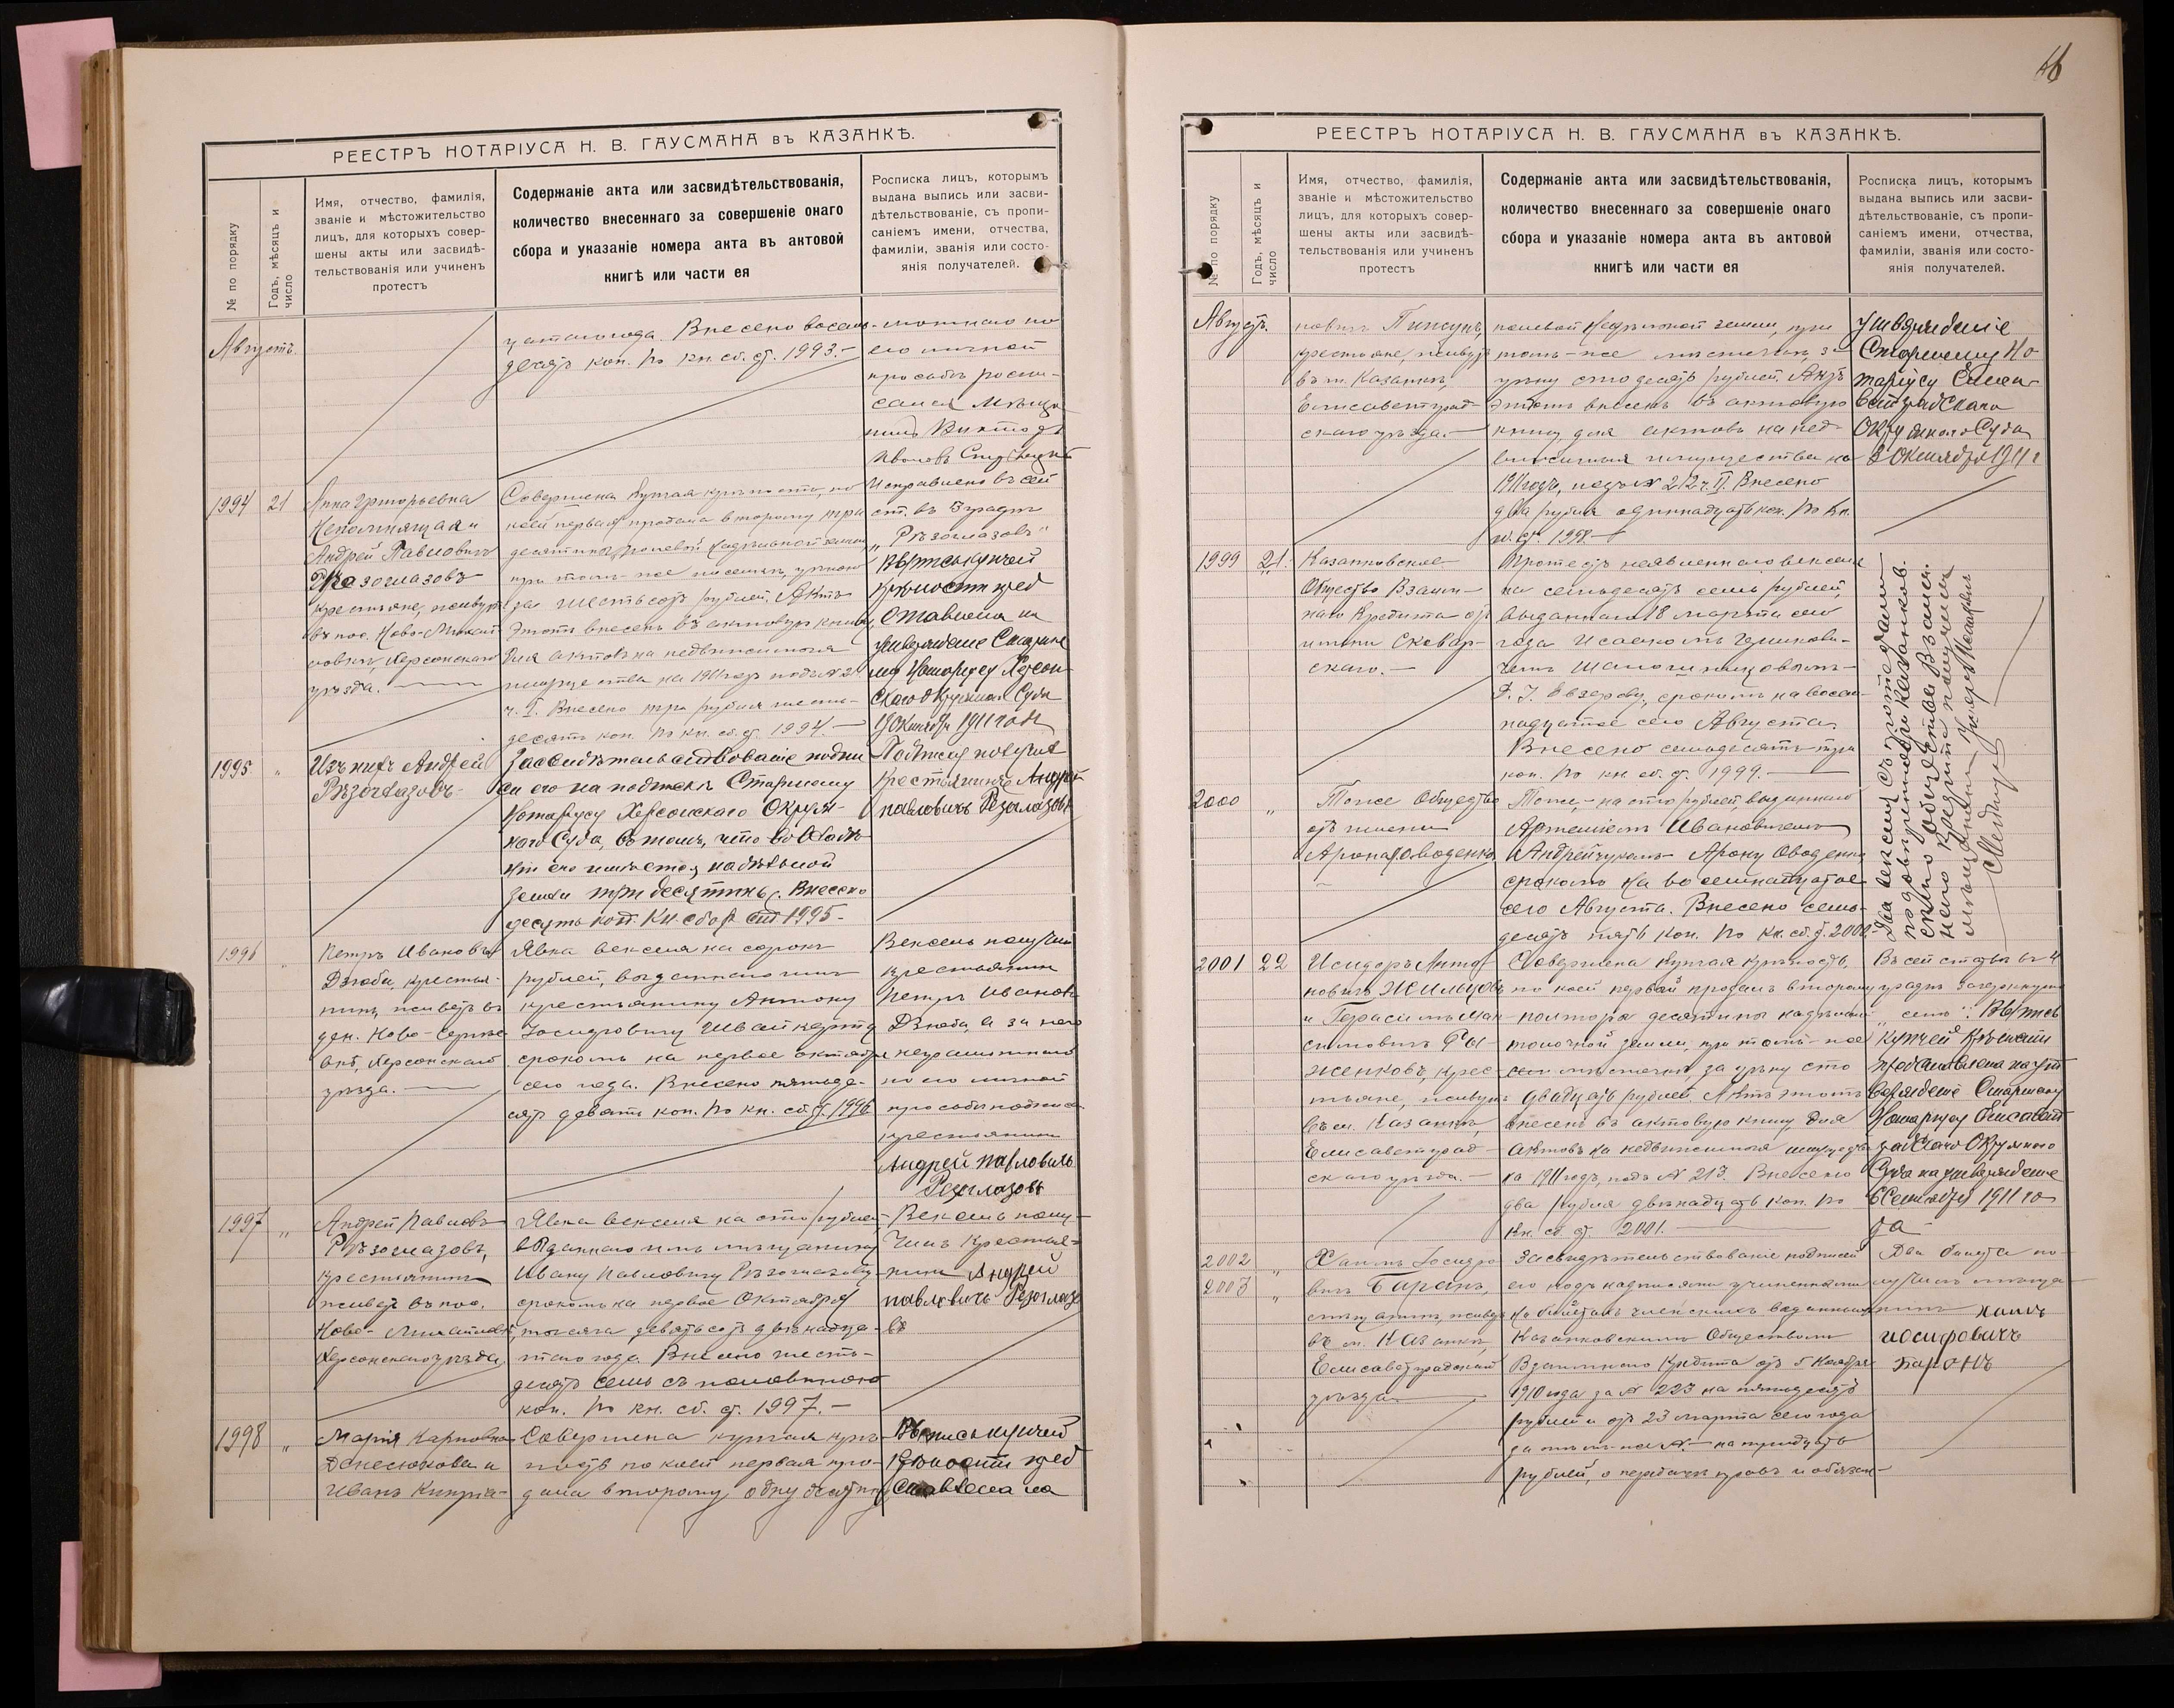 РЕЕСТРЪ НОТАРІУСА Н. В. ГАУСМАНА въ КАЗАНКѢ.
№ по порядку
Годъ, мѣсяцъ и
число
Имя, отчество, фамилія,
званіе и мѣстожительство
лицъ, для которыхъ совер-
шены акты или засвидѣ-
тельствованія или учиненъ
протестъ
Содержаніе акта или засвидѣтельствованія,
количество внесеннаго за совершеніе онаго
сбора и указаніе номера акта въ актовой
книгѣ или части ея
Росписка лицъ, которымъ
выдана выпись или засви-
дѣтельствованіе, съ пропи-
саніемъ имени, отчества,
фамиліи, званія или состо-
янія получателей.
Августъ.
года. Внесено восемь-
десятъ коп. По кн. сб. ст. 1993.-
его личной
просьбѣ роспи-
сался мѣща-
нинъ
1994 21
Анна Григорьевна
Непомнящая и
Андрей Павловичъ
Рѣзоглазовъ
крестьяне, живутъ
въ пос. Ново-Михай-
ловкѣ, Херсонскаго
уѣзда.
Совершена купчая крѣпость, по
коей первая продала второму три
десятины полевой надѣльной земли
при томъ-же поселкѣ, цѣною
за шестьсотъ рублей. Актъ
этотъ внесенъ въ актовую книгу
для актовъ на недвижимыя
имущества на 1911 годъ подъ №
ч. I. Внесено три рубля шесть-
десятъ коп. По кн. сб. ст. 1994.-
Исправлено въ сей
ст. въ 3 графѣ
„Рѣзоглазовъ"
Выпись купчей
крѣпости пред
ставлена на
утвержденіе Старше
му Нотаріусу Херсон
скаго Окружнаго Суда
1911 года
1995 "
Изъ нихъ Андрей
Рѣзоглазовъ
Засвидѣтельствованіе подпи
си его на подпискѣ Старшему
Нотаріусу Херсонскаго Окруж-
наго Суда, въ томъ, что во владѣ-
ніи его имѣется надѣльной
земли три десятины. Внесено
десять коп. Кн. сбор. ст. 1995-
Подписку получилъ
Крестьянинъ Андрей
павловичъ Резоглазовъ
1996 "
Петръ Ивановъ
Дзюба, крестья-
нинъ, живетъ въ
дер. Ново-Сергѣе
вкѣ, Херсонскаго
уѣзда.
Явка векселя на сорокъ
рублей, выданнаго имъ
крестьянину Антону
Іосифовичу
срокомъ на первое октября
сего года. Внесено пятьде-
сятъ девять коп. По кн. сб. ст. 1996
Вексель получилъ
крестьянинъ
Петръ Ивановъ
Дзюба, а за него
неграмотнаго
по его личной
просьбѣ подписался
крестьянинъ
Андрей павловичъ
Резоглазовъ
1997 "
Андрей Павловъ
Рѣзоглазовъ,
крестьянинъ
живетъ въ пос.
Ново-Михайловкѣ,
Херсонскаго уѣзда.
Явка векселя на сто рублей,
выданнаго имъ мѣщанину
Ивану Павловичу Рѣзоглазову
срокомъ на первое Октября
тысяча девятьсотъ двѣнадца-
таго года. Внесено шесть-
десятъ семь съ половиною
коп. По кн. сб. ст. 1997.-
Вексель полу-
чилъ Крестья-
нинъ Андрей
павловичъ Резоглазо
въ
1998 "
Марія Карповна
Денесюкова и
Иванъ
Совершена купчая крѣ-
пость по коей первая про-
дала второму одну десятину
Выпись купчей
крѣпости пред
ставлена на
46
РЕЕСТРЪ НОТАРІУСА Н. В. ГАУСМАНА въ КАЗАНКѢ.
№ по порядку
Годъ, мѣсяцъ и
число
Имя, отчество, фамилія,
званіе и мѣстожительство
лицъ, для которыхъ совер-
шены акты или засвидѣ-
тельствованія или учиненъ
протестъ
Содержаніе акта или засвидѣтельствованія,
количество внесеннаго за совершеніе онаго
сбора и указаніе номера акта въ актовой
книгѣ или части ея
Росписка лицъ, которымъ
выдана выпись или засви-
дѣтельствованіе, съ пропи-
саніемъ имени, отчества,
фамиліи, званія или состо-
янія получателей.
Августъ.
крестьяне, живутъ
въ м. Казанкѣ,
Елисаветград-
скаго уѣзда.-
полевой надѣльной земли, при
томъ-же мѣстечкѣ, за
цѣну сто десять рублей. Актъ
этотъ внесенъ въ актовую
книгу для актовъ на нед-
вижимыя имущества на
1911 годъ, подъ № 212 ч. II. Внесено
два рубля одиннадцать коп. По кн.
сб. ст. 1998.-
утвержденіе
Старшему Но-
таріусу Елиса-
ветградскаго
Окружнаго Суда
3 Октября 1911 г
1999 21.
Казанковское
Общество Взаим-
наго Кредита отъ
имени Сквар-
скаго.-
Протестъ неявленнаго векселя
на семьдесятъ семь рублей,
выданнаго 18 марта сего
года Исаакомъ
срокомъ на восем-
надцатое сего Августа.
Внесено семьдесятъ три
коп. По кн. сб. ст. 1999.-
2000 "
Тоже Общество
отъ имени
Арона Оводенко
Тоже,- на сто рублей, выданнаго
Артеміемъ Ивановичемъ
Андрейчукомъ Арону Оводенко
срокомъ на восемнадцатое
сего Августа. Внесено семь-
десятъ пять коп. По кн. сб. ст. 2000-
Два векселя съ протестами
Казанков.
скаго общества Взаим.
наго кредита получилъ
мѣщанинъ
2001 22
Исидоръ Анто-
новичъ Жильцовъ
и Герасимъ Мак-
симовичъ Ры-
женковъ, крес-
тьяне, живутъ
въ м. Казанкѣ,
Елисаветград-
скаго уѣзда.-
Совершена купчая крѣпость,
по коей первый продалъ второму
полтора десятины надѣльной
земли, при томъ-же
мѣстечкѣ, за цѣну сто
двадцать рублей. Актъ этотъ
внесенъ въ актовую книгу для
актовъ на недвижимыя имущества
на 1911 годъ, подъ № 213. Внесено
два рубля двѣнадцать коп. По
кн. сб. ст. 2001.
Въ сей статьѣ въ 4
графѣ зачеркнуто
Выпись
Купчей Крѣпости
представлена на ут
вержденіе Старшему
Нотаріусу Елисавет
градскаго Окружнаго
Суда на утвержденіе
6 Сентября 1911 го
да
2002 "
2003 "
Хаимъ Іосифо-
вичъ Баранъ,
мѣщанинъ, живетъ
въ м. Казанкѣ,
Елисаветградскаго
уѣзда
Засвидѣтельствованіе подписей
его подъ надписями учиненными
на билетахъ членскихъ выданныхъ
Казанковскимъ Обществомъ
Взаимнаго Кредита отъ 5 Ноября
1910 года за № 223 на пятьдесятъ
рублей и отъ 23 марта сего года
за тѣмъ-же №- на тридцать
рублей, о передачѣ правъ и обязан-
Два билета по-
лучилъ мѣща-
нинъ
иосифовичъ